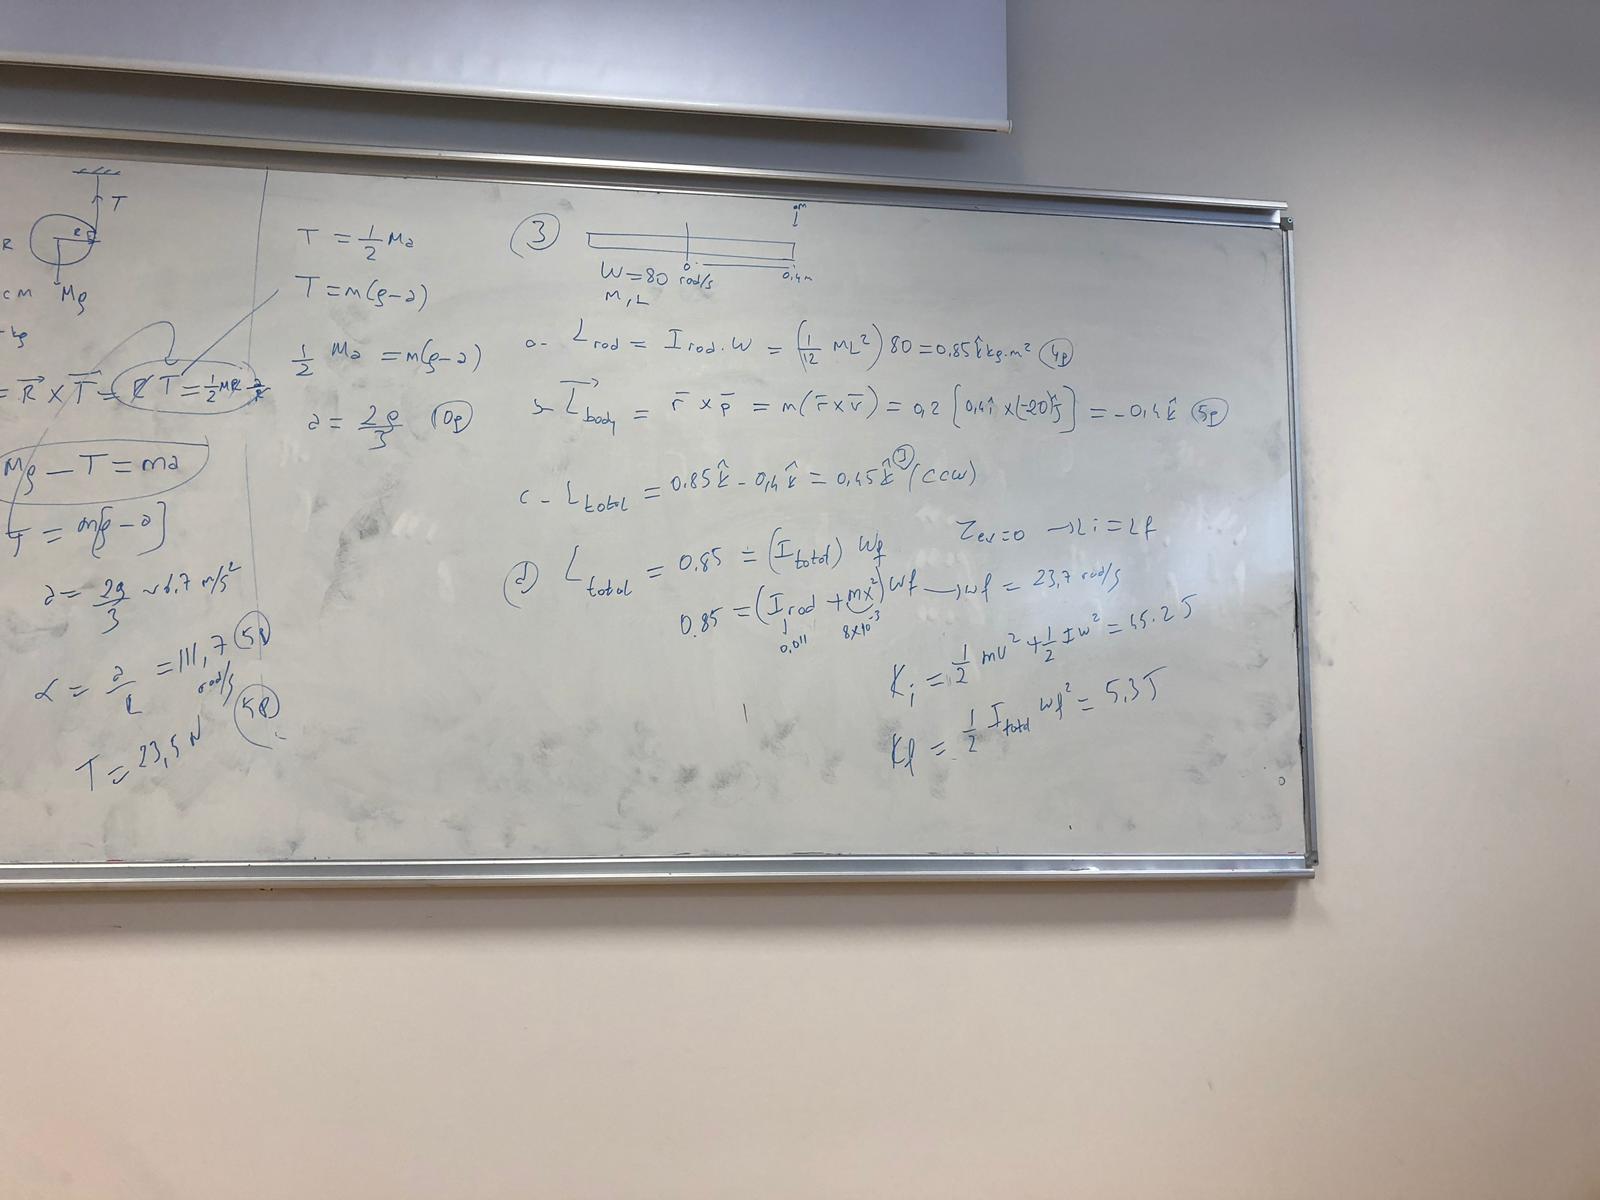 T
R
Mg
cm
kg
= R⃗ × T⃗ = R T = ½ MR a/R
Mg − T = ma
T = m[g − a]
a = 2g/3 ~ 6.7 m/s²
α = a/R = 111,7 rad/s (5P)
T = 23,5 N (5P)
T = ½ Ma
T = m(g−a)
½ Ma = m(g−a)
a = 2g/3 (10p)
(3)
m
W = 80 rad/s
0
0,4m
M, L
a- L_rod = I_rod . W = (1/12 ML²) 80 = 0.85 k̂ kg.m² (4p)
b- L⃗_body = r̄ × p̄ = m(r̄ × v̄) = 0,2 [0,4î × (−20)ĵ] = −0,4 k̂ (5p)
c - L_total = 0.85 k̂ − 0,4 k̂ = 0,45 k̂ (3) (CCW)
τ_ex = 0 → Li = Lf
d) L_total = 0.85 = (I_total) Wf
0.85 = (I_rod + mx²) Wf → wf = 23,7 rad/s
0,011 8×10⁻³
Ki = ½ mv² + ½ Iw² = 45.2 J
Kf = ½ I_total wf² = 5,3 J